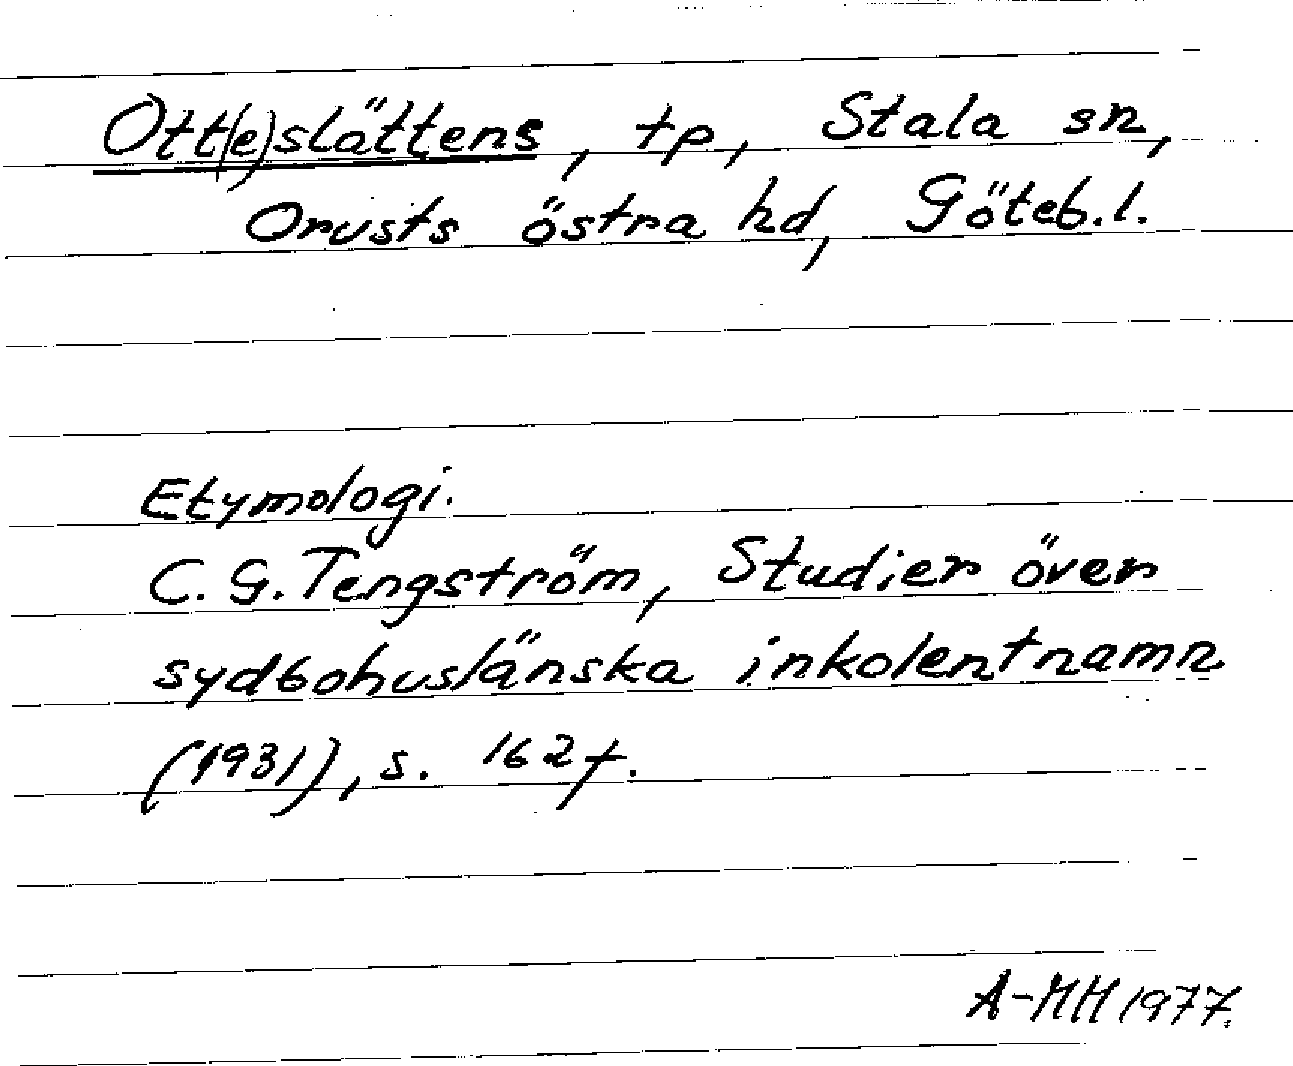 Ott(e)slättens, tp, Stala sn,
Orusts östra hd, Göteb.l.
Etymologi.
C. G. Tengström, Studier över
sydbohuslänska inkolentnamn
(1931), s. 162f.
A-MH 1977.